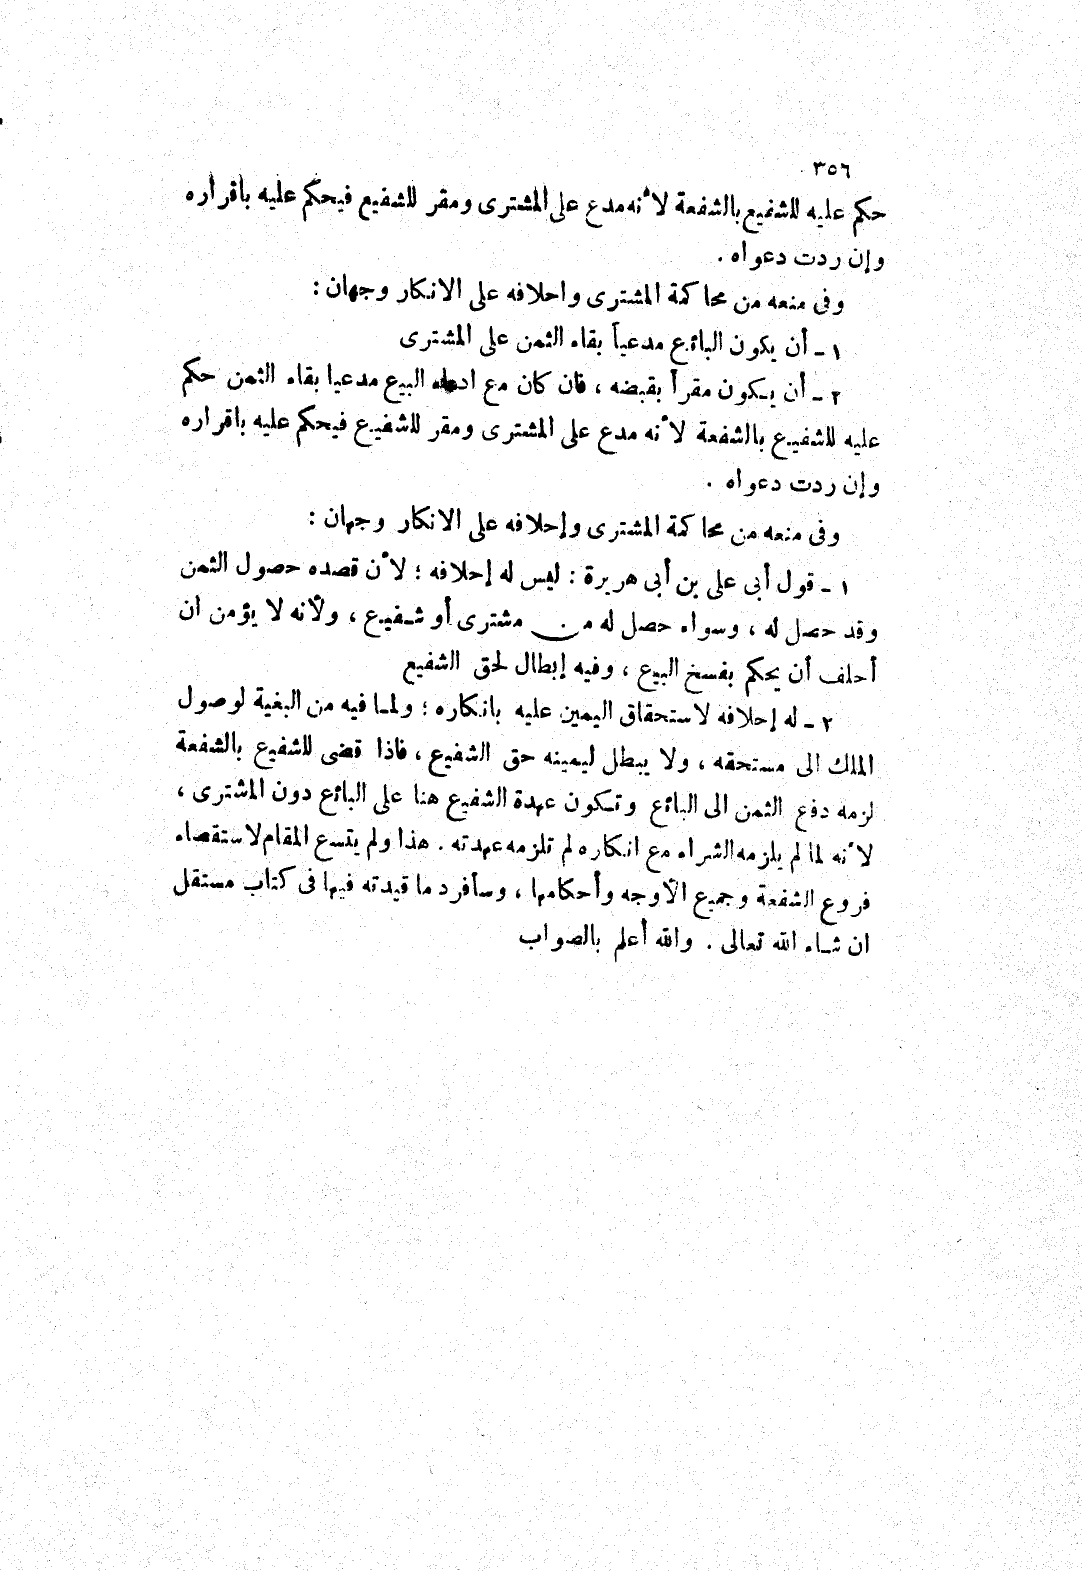 ٣٥٦
حكم عليه للشفيع بالشفعة لأنه مدع على المشترى ومقر للشفيع فيحكم عليه باقراره
وإن ردت دعواه .
وفى منعه من محاكمة المشترى واحلافه على الانكار وجهان :
١ ـ أن يكون البائع مدعياً بقاء الثمن على المشترى
٢ ـ أن يكون مقراً بقبضه ، فان كان مع ادعاء البيع مدعيا بقاء الثمن حكم
عليه للشفيع بالشفعة لأنه مدع على المشترى ومقر للشفيع فيحكم عليه باقراره
وإن ردت دعواه .
وفى منعه من محاكمة المشترى وإحلافه على الانكار وجهان :
١ ـ قول أبى على بن أبى هريرة : ليس له إحلافه ؛ لأن قصده حصول الثمن
وقد حصل له ، وسواء حصل له من مشترى أو شفيع ، ولأنه لا يؤمن ان
أحلف أن يحكم بفسخ البيع ، وفيه إبطال لحق الشفيع
٢ ـ له إحلافه لاستحقاق اليمين عليه بانكاره ؛ ولما فيه من البغية لوصول
الملك الى مستحقه ، ولا يبطل ليمينه حق الشفيع ، فاذا قضى للشفيع بالشفعة
لزمه دفع الثمن الى البائع وتكون عهدة الشفيع هنا على البائع دون المشترى ،
لأنه لما لم يلزمه الشراء مع انكاره لم تلزمه عهدته . هذا ولم يتسع المقام لاستقصاء
فروع الشفعة وجميع الأوجه وأحكامها ، وسأفرد ما قيدته فيها فى كتاب مستقل
ان شاء الله تعالى . والله أعلم بالصواب